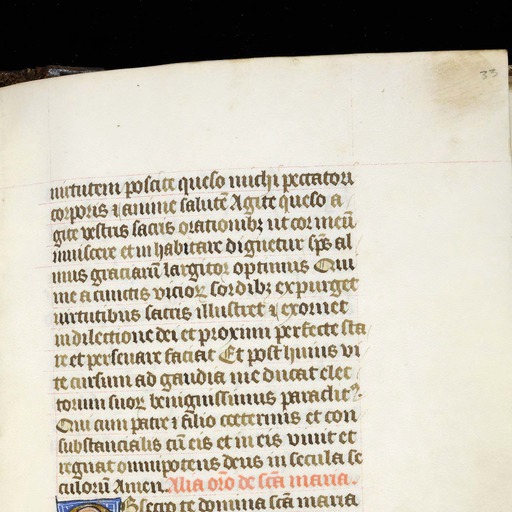 33
uirtutem poscite queso michi peccatori
corporis ⁊ anime salutē Agite queso a
gite vestris sacris orationibꝫ ut cor meū
inuisere et inhabitare dignetur sp̄s al
mus graciarū largitor optimus Qui
me a cunctis vicioꝝ sordibꝫ expurget
uirtutibus sacris illustret ⁊ exornet
in dilectione dei et proximi perfecte sta
re et perseuare faciat Et post huius vi
te cursum ad gaudia me ducat elec
torum suoꝝ benignissimus paraclitꝰ.
Qui cum patre ⁊ filio coeternis et con
substancialis cū eis et in eis viuit et
regnat omnipotens deus in secula se
culorū Amen. Alia orō de sc̄a maria.
Obsecro te domina sc̄a maria